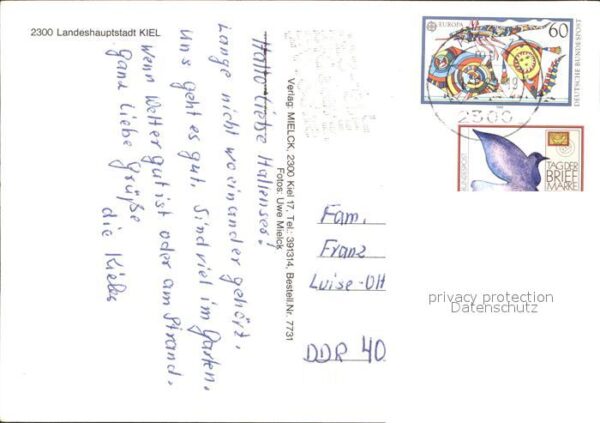 2300 Landeshauptstadt KIEL
Hallo liebe Hallenser!
Lange nicht voneinander gehört.
Uns geht es gut. Sind viel im Garten,
wenn Wetter gut ist oder am Strand.
Ganz liebe Grüße
die Kieler
Verlag: MIELCK, 2300 Kiel 17, Tel.: 391314, Bestell.Nr. 7731
Fotos: Uwe Mielck
EUROPA
60
DEUTSCHE BUNDESPOST
2300
TAG DER
BRIEF
MARKE
Fam.
Franz
Luise-Ott
DDR 40
privacy protection
Datenschutz